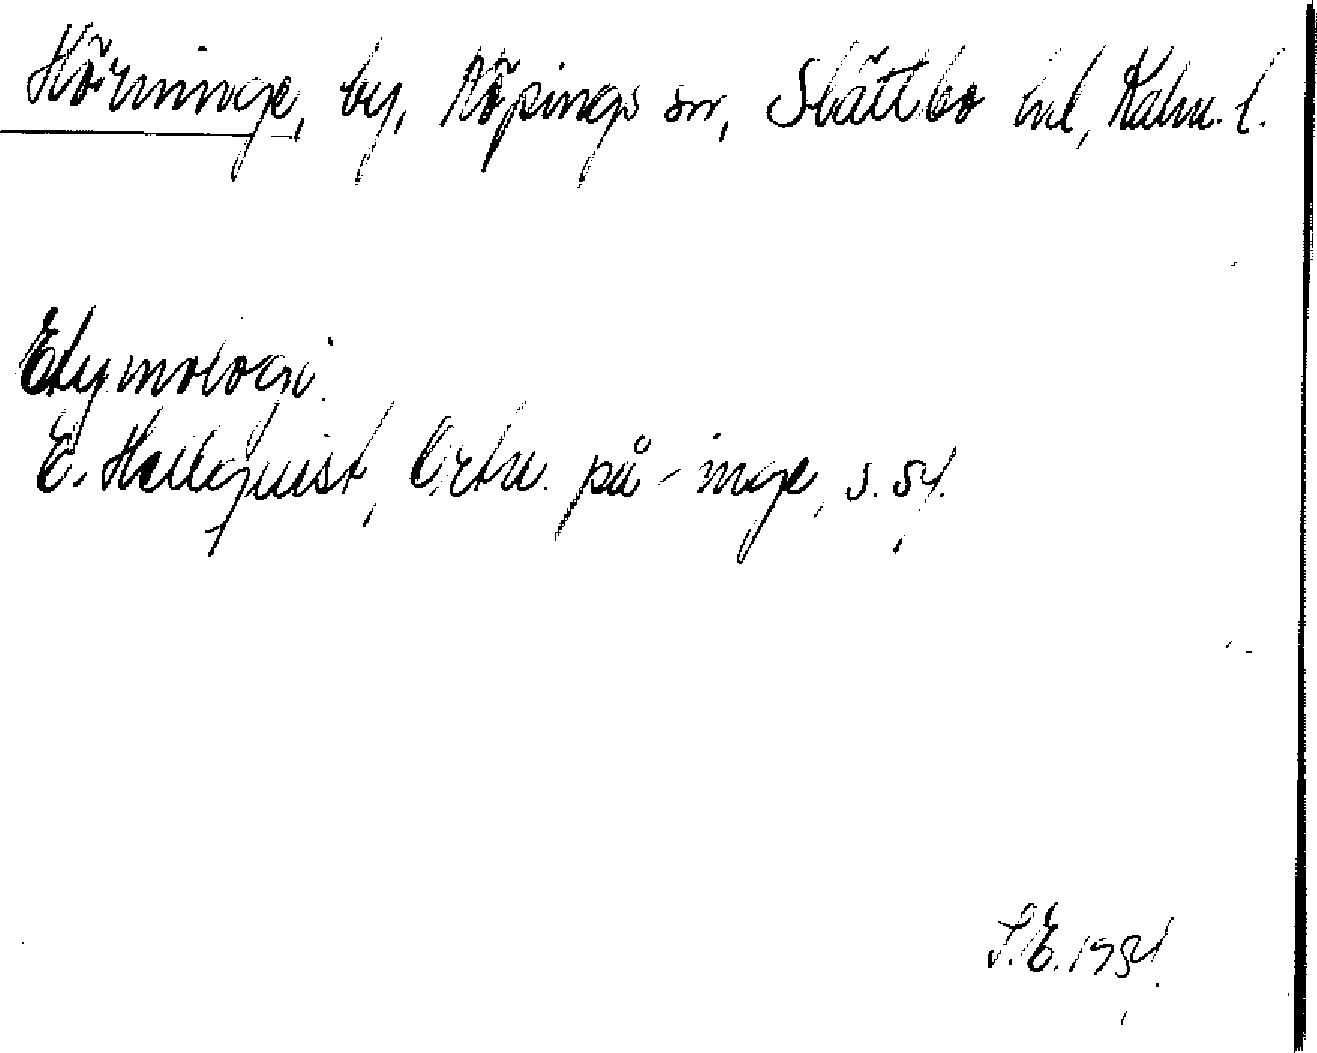 Hörninge, by, Köpings sn, Slättbo hd, Kalm. l.
Etymologi.
E. Hellquist, Ortn. på -inge, s. 54.
S.E. 1954.